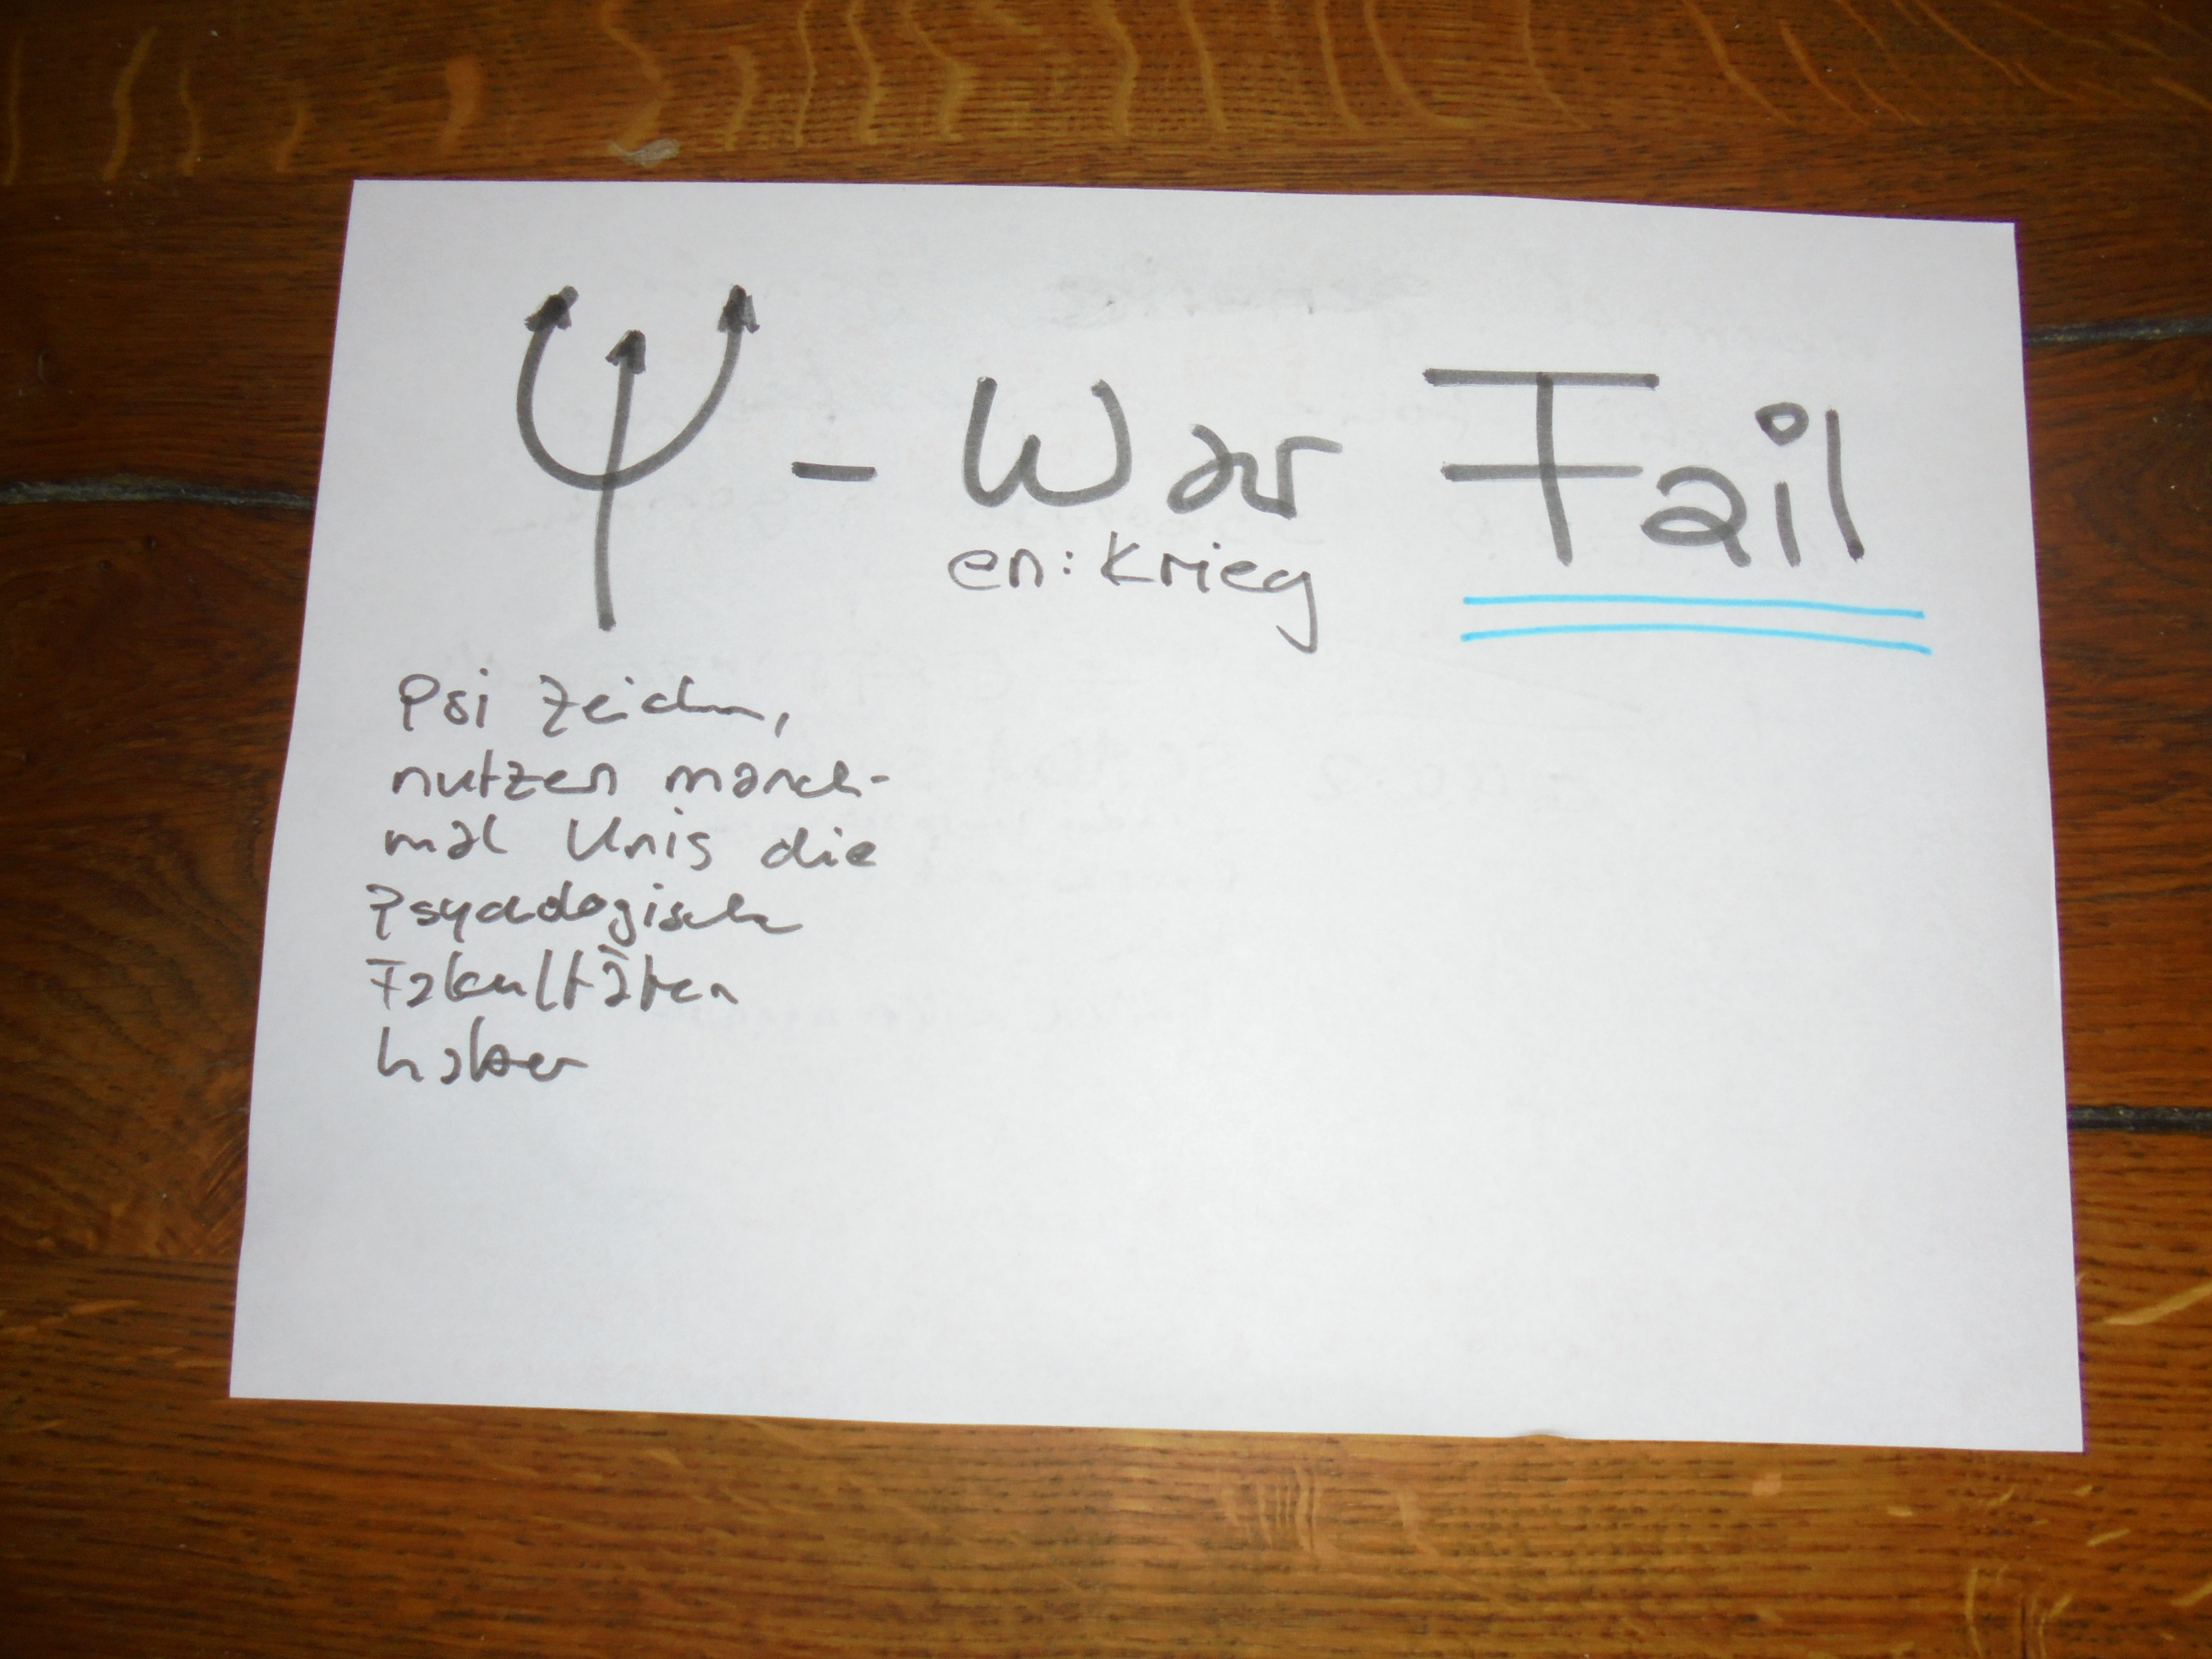 Ψ - War Fail
en: Krieg
Psi Zeichen,
nutzen manch-
mal Unis die
Psychologische
Fakultäten
haben